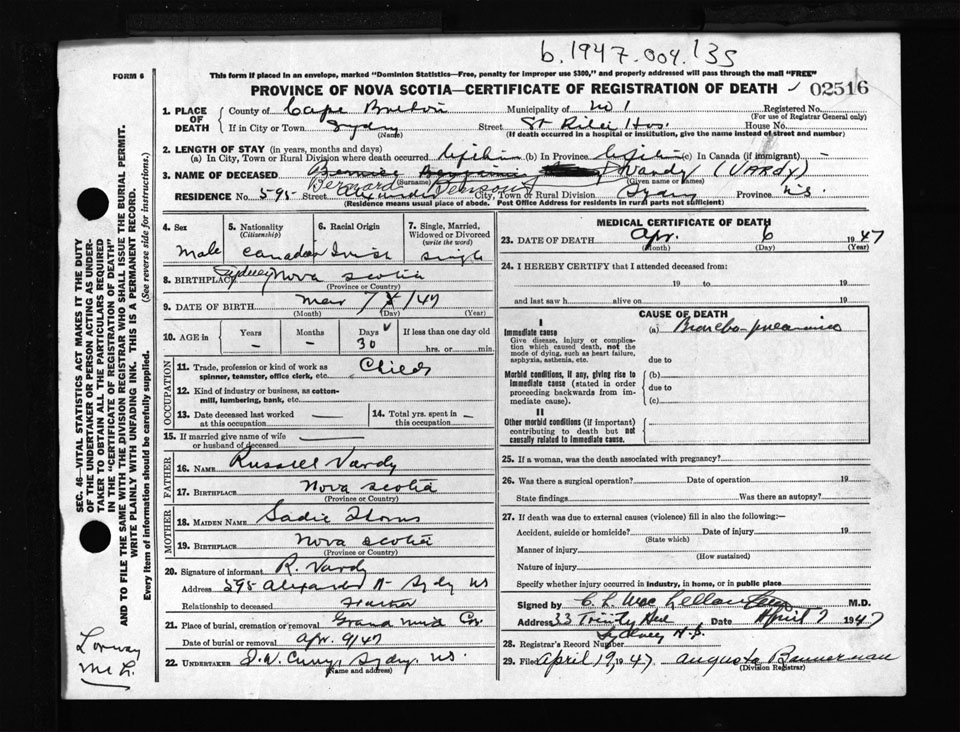 b.1947.004.135
FORM 6
This form if placed in an envelope, marked "Dominion Statistics—Free, penalty for improper use $300," and properly addressed will pass through the mail "FREE"
PROVINCE OF NOVA SCOTIA—CERTIFICATE OF REGISTRATION OF DEATH 02516
1. PLACE OF DEATH County of Cape Breton Municipality of No 1 Registered No.
(For use of Registrar General only)
If in City or Town Sydney Street St Hos. House No.
(Name) (If death occurred in a hospital or institution, give the name instead of street and number)
2. LENGTH OF STAY (in years, months and days)
(a) In City, Town or Rural Division where death occurred lifetime (b) In Province lifetime (c) In Canada (if immigrant) –
3. NAME OF DECEASED Bernard Vardy (VARDY)
(Surname) (Given name or names)
RESIDENCE No. 595 Street Alexander City, Town or Rural Division Sydney Province N.S.
Residence means usual place of abode. Post Office Address for residents in rural parts not sufficient)
4. Sex 5. Nationality (Citizenship) 6. Racial Origin 7. Single, Married, Widowed or Divorced (write the word)
Male Canadian Irish Single
8. BIRTHPLACE Sydney Nova Scotia
(Province or Country)
9. DATE OF BIRTH Mar 7 /47
(Month) (Day) (Year)
10. AGE in Years Months Days If less than one day old
– – 30 hrs. or min.
OCCUPATION
11. Trade, profession or kind of work as spinner, teamster, office clerk, etc. Child
12. Kind of industry or business, as cotton-mill, lumbering, bank, etc.
13. Date deceased last worked at this occupation — 14. Total yrs. spent in this occupation –
15. If married give name of wife or husband of deceased —
FATHER
16. NAME Russell Vardy
17. BIRTHPLACE Nova Scotia
(Province or Country)
MOTHER
18. MAIDEN NAME Sadie
19. BIRTHPLACE Nova Scotia
(Province or Country)
20. Signature of informant R. Vardy
Address 595 Alexander St Sydney NS
Relationship to deceased Father
21. Place of burial, cremation or removal
Date of burial or removal Apr. 9/47
22. UNDERTAKER Curry, Sydney, N.S.
(Name and address)
MEDICAL CERTIFICATE OF DEATH
23. DATE OF DEATH Apr. 6 1947
(Month) (Day) (Year)
24. I HEREBY CERTIFY that I attended deceased from:
19 to 19
and last saw h alive on 19
CAUSE OF DEATH
I
Immediate cause (a) Broncho-pneumonia
Give disease, injury or complication which caused death, not the mode of dying, such as heart failure, asphyxia, asthenia, etc.
due to
Morbid conditions, if any, giving rise to immediate cause (stated in order proceeding backwards from immediate cause).
(b)
due to
(c)
II
Other morbid conditions (if important) contributing to death but not causally related to immediate cause.
25. If a woman, was the death associated with pregnancy?
26. Was there a surgical operation? Date of operation 19
State findings Was there an autopsy?
27. If death was due to external causes (violence) fill in also the following:—
Accident, suicide or homicide? Date of injury 19
(State which)
Manner of injury
(How sustained)
Nature of injury
Specify whether injury occurred in industry, in home, or in public place
Signed by C. L. MacLellan M.D.
Address 33 Trinity Ave Date April 7 1947
Sydney N.S.
28. Registrar's Record Number
29. Filed April 19 1947 Augusta Bannerman
(Division Registrar)
SEC. 46—VITAL STATISTICS ACT MAKES IT THE DUTY
OF THE UNDERTAKER OR PERSON ACTING AS UNDER-
TAKER TO OBTAIN ALL THE PARTICULARS REQUIRED
IN THE "CERTIFICATE OF REGISTRATION OF DEATH"
AND TO FILE THE SAME WITH THE DIVISION REGISTRAR WHO SHALL ISSUE THE BURIAL PERMIT.
WRITE PLAINLY WITH UNFADING INK. THIS IS A PERMANENT RECORD.
Every item of information should be carefully supplied. (See reverse side for instructions.)
Lorway